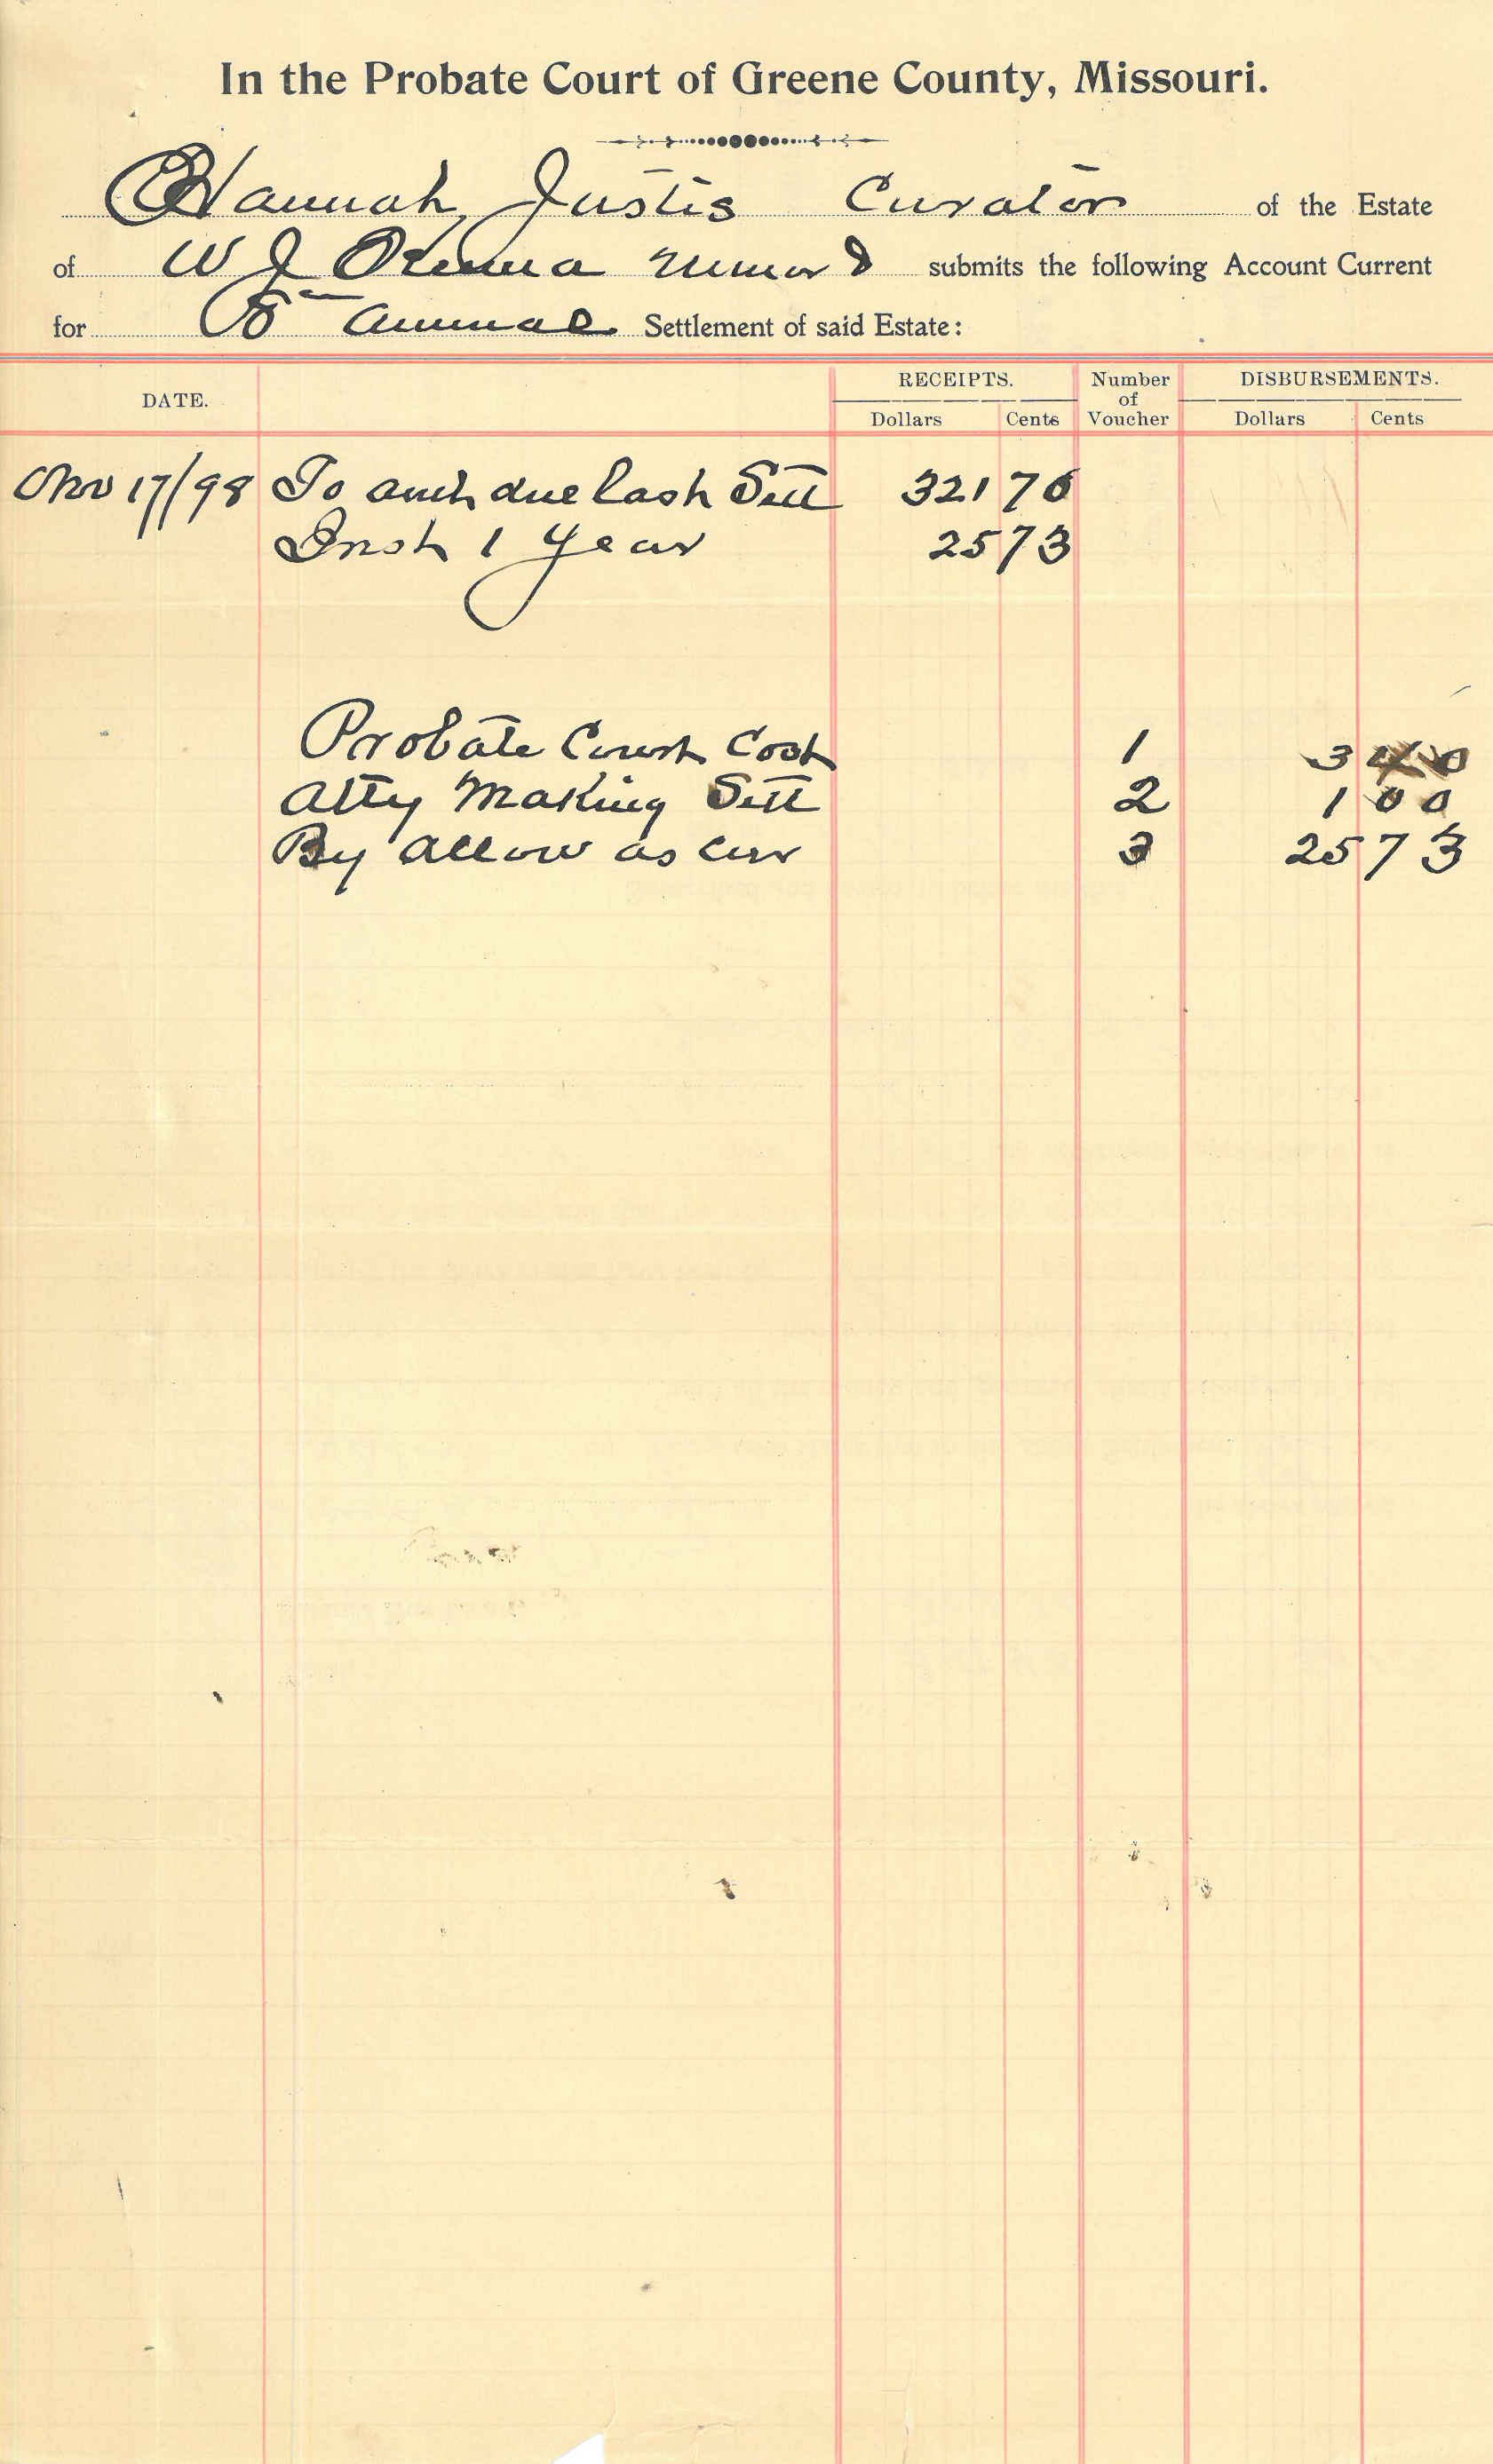 In the Probate Court of Greene County, Missouri.
Hannah Justis Curator of the Estate
of W J minor submits the following Account Current
for 8th Annual Settlement of said Estate:
DATE. RECEIPTS. Number of Voucher DISBURSEMENTS.
Dollars Cents Dollars Cents
Nov 17/98 To amt due last Sett 321 76
Inst 1 Year 25 73
Probate Court Cost 1 3
Atty Making Sett 2 1 00
By Allow as Cur 3 25 73